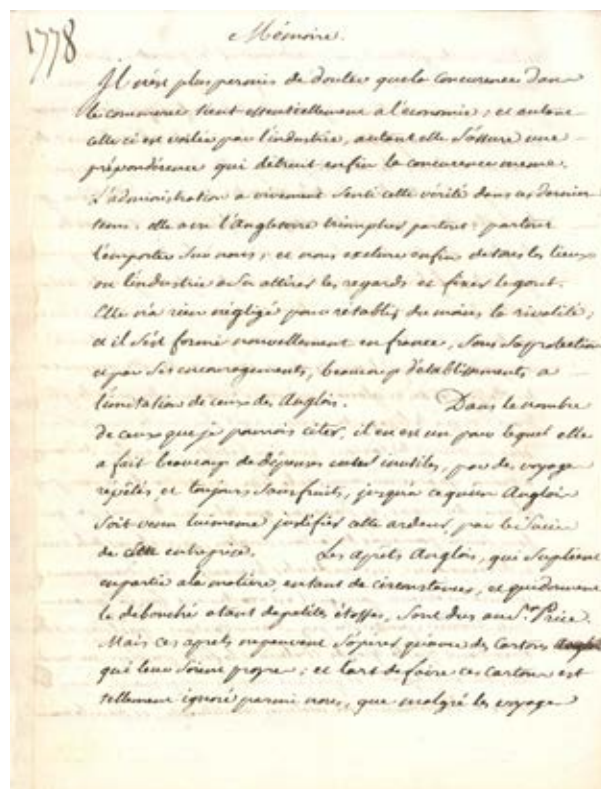 1778
Mémoire.
Il n'est plus permis de douter que la concurence dans
le commerce tient essentiellement a l'économie; et autant
celle ci est voilée par l'industrie, autant elle s'assure une
préponderence qui détruit enfin la concurence meme.
L'administration a vivement senti cette vérité dans ces derniers
tems. elle a vu l'Angleterre triompher partout, partout
l'emporter sur nous; et nous exclure enfin de tous les lieux
ou l'industrie a su attirer les regards et fixer le gout.
Elle n'a rien négligé pour rétablir du moins la rivalité;
et il s'est formé nouvellement en france, sous sa protection
et par ses encouragements, beaucoup d'etablissements a
l'imitation de ceux des Anglois. Dans le nombre
de ceux que je pourrois citer, il en est un pour lequel elle
a fait beaucoup de dépenses inutiles, par des voyages
répétés et toujours sans fruits, jusqu'a ce qu'un Anglois
soit venu lui meme justifier cette ardeur, par le succès
de cette entreprise. Les aprets Anglois, qui supléent
en partie a la matière, en tant de circonstances, et qui donnent
le débouché a tant de petites étoffes, sont dus au Sr. Price.
Mais ces aprets ne peuvent s'opérer qu'avec des cartons
qui leur soient propres; et l'art de faire ces cartons est
tellement ignoré parmi nous, que malgré les voyages